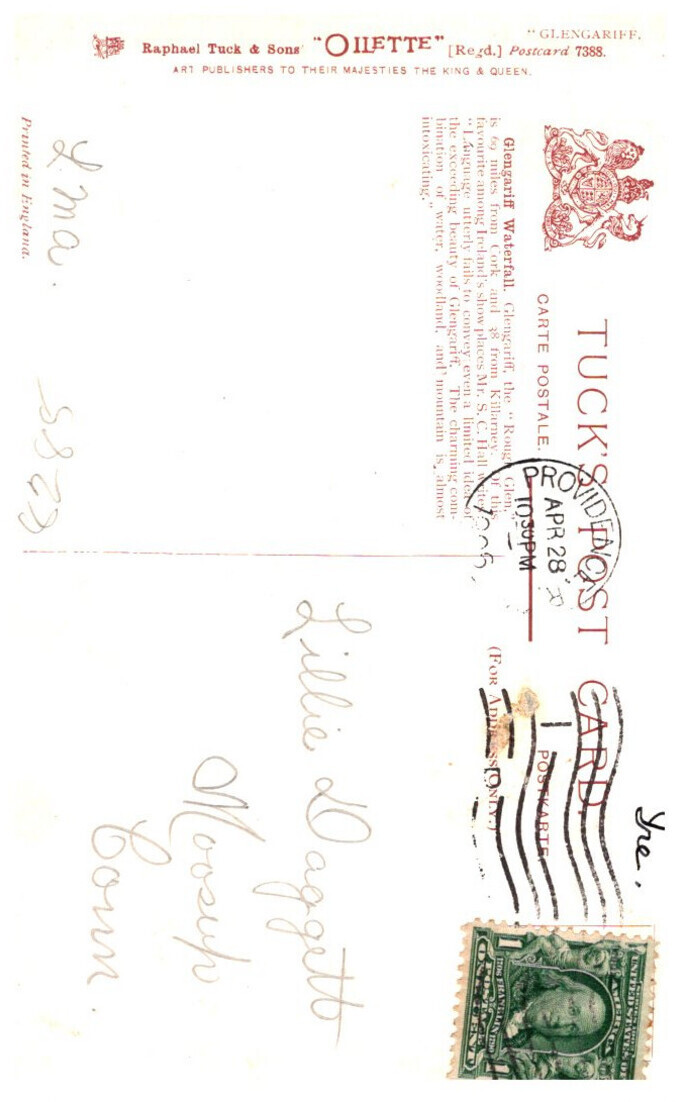 "GLENGARIFF.
Raphael Tuck & Sons' "OILETTE" [Regd.] Postcard 7388.
ART PUBLISHERS TO THEIR MAJESTIES THE KING & QUEEN.
TUCK'S POST CARD.
CARTE POSTALE. POSTKARTE
(FOR ADDRESS ONLY.)
Ire.
PROVIDENCE
APR 28
1030PM
Glengariff Waterfall. Glengariff, the "Rough Glen,"
is 69 miles from Cork and 38 from Killarney. Of this
favourite among Ireland's show places Mr. S. C. Hall writes
"Language utterly fails to convey even a limited idea of
the exceeding beauty of Glengariff. The charming com-
bination of water, woodland, and mountain is almost
intoxicating."
Lillie Daggett
Moosup
Conn.
Printed in England.
UNITED STATES OF AMERICA
1706 FRANKLIN 1790
POSTAGE
1 ONE CENT 1